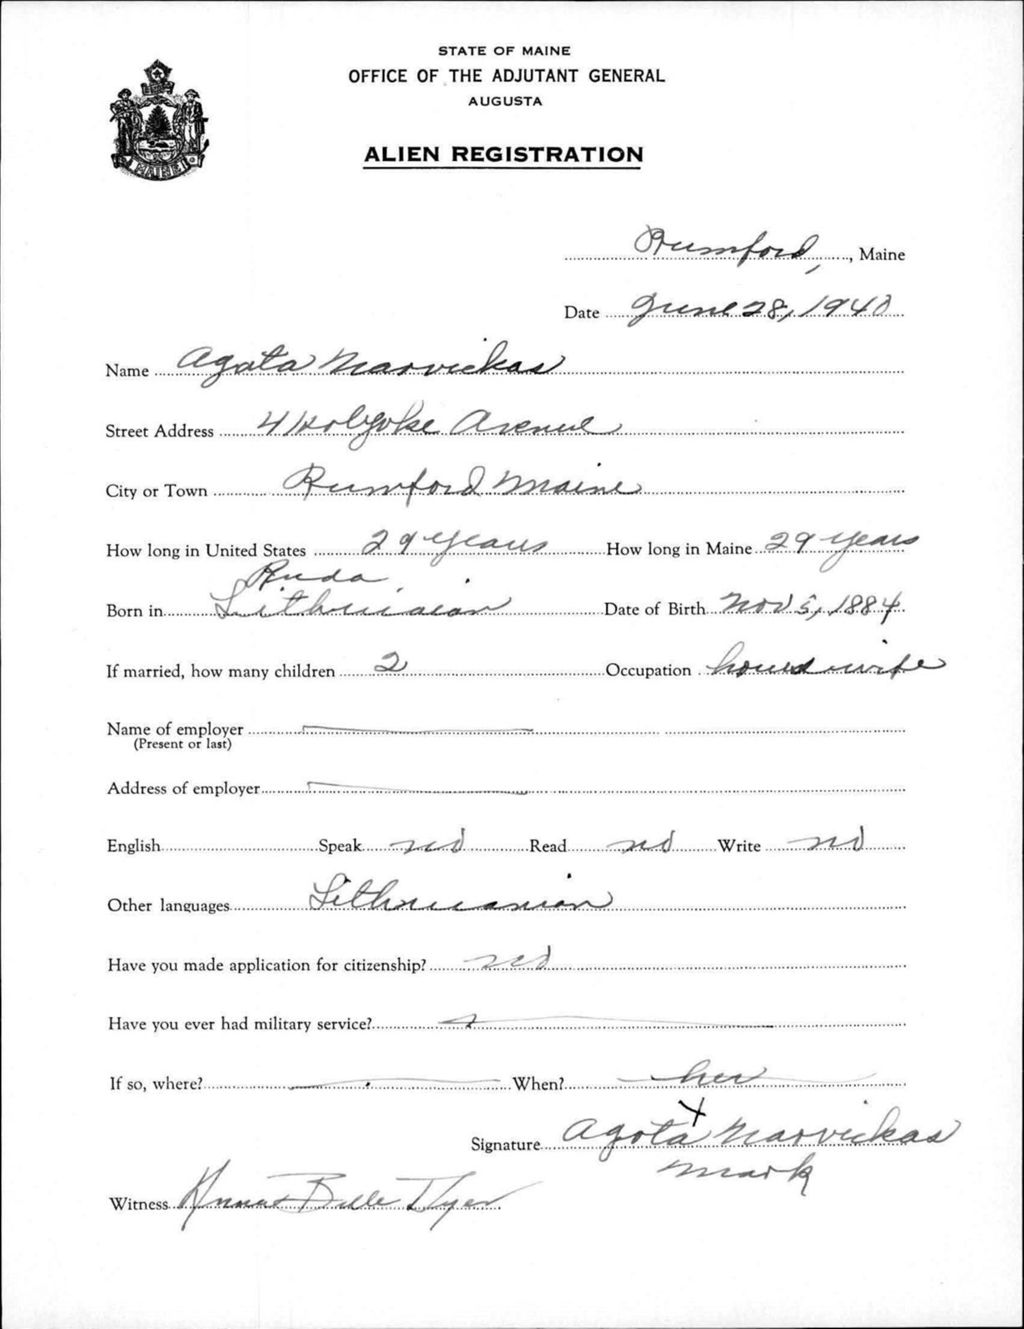 STATE OF MAINE
OFFICE OF THE ADJUTANT GENERAL
AUGUSTA
ALIEN REGISTRATION
MAINE
Rumford, Maine
Date June 28, 1940
Name Agata Narvickas
Street Address 4 Holyoke Avenue
City or Town Rumford Maine
How long in United States 29 years How long in Maine 29 years
Ruda
Born in Lithuiaian Date of Birth Nov 5, 1884
If married, how many children 2 Occupation housewife
Name of employer
(Present or last)
Address of employer
English Speak no Read no Write no
Other languages Lithuanian
Have you made application for citizenship? no
Have you ever had military service?
If so, where? When?
her
Signature Agota X Narvickas
mark
Witness Anna Belle Dyer